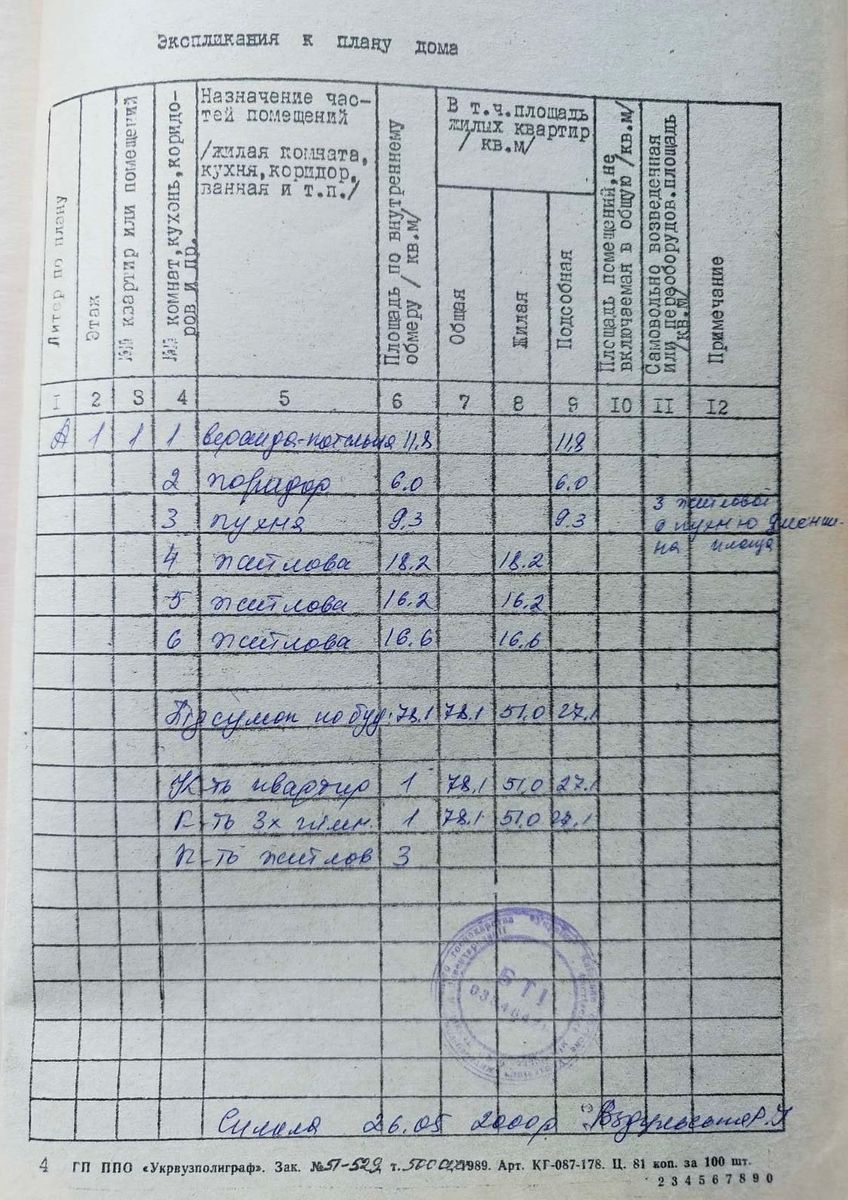 Экспликания к плану дома
Литер по плану
Этаж
№№ квартир или помещений
№№ комнат,кухонь,коридо-
ров и пр.
Назначение час-
тей помещений
/жилая комната,
кухня,коридор,
ванная и т.п./
Площадь по внутреннему
обмеру / кв.м/
В т.ч.площадь
жилых квартир
/ кв.м/
Общая
Жилая
Подсобная
Площадь помещений,не
включаемая в общую /кв.м/
Самовольно возведенная
или переоборудов.площадь
/кв.м/
Примечание
1 2 3 4 5 6 7 8 9 10 11 12
А 1 1 1 веранда-котельня 11,8 11,8
2 коридор 6.0 6.0
3 кухня 9,3 9.3
З житлової
в кухню зменше-
на площа
4 житлова 18.2 18.2
5 житлова 16.2 16.2
6 житлова 16.6 16.6
Підсумок по буд. 78.1 78.1 51.0 27.1
К-ть квартир 1 78.1 51.0 27.1
К-ть 3х кімн. 1 78.1 51.0 27.1
К-ть житлов 3
БТІ
26.05 2000р
4 ГП ППО «Укрвузполиграф». Зак. № 51-529 т. 1989. Арт. КГ-087-178. Ц. 81 коп. за 100 шт.
2 3 4 5 6 7 8 9 0